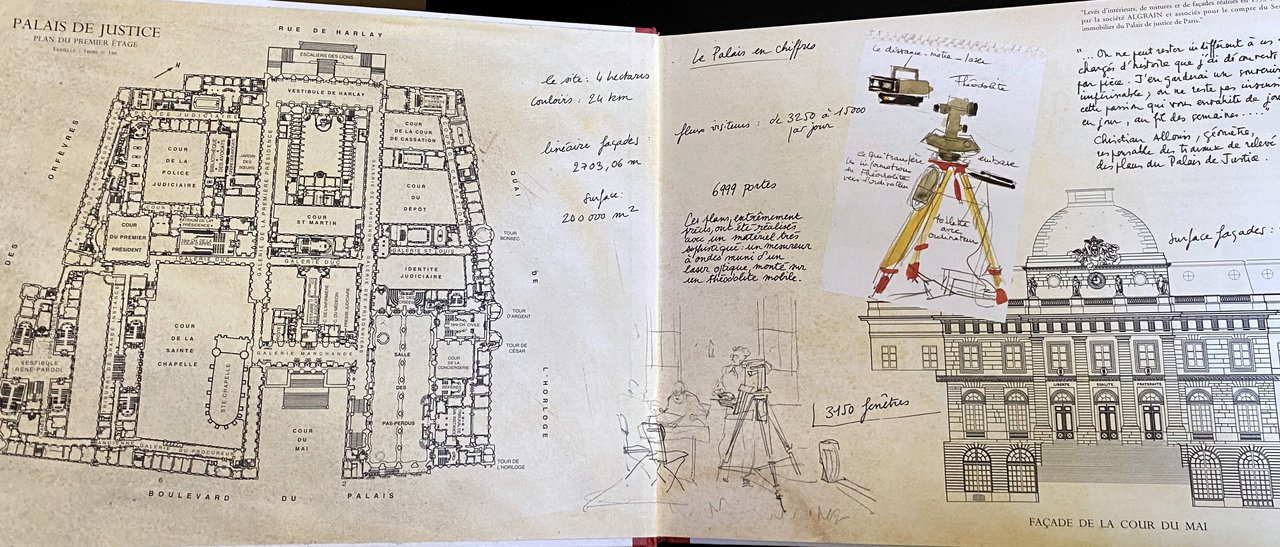 PALAIS DE JUSTICE
PLAN DU PREMIER ÉTAGE
RUE DE HARLAY
ESCALIERS DES LIONS
VESTIBULE DE HARLAY
POLICE JUDICIAIRE
COUR
DE LA
POLICE
JUDICIAIRE
JARDIN
COUR
DE LA COUR
DE CASSATION
COUR
DU
DÉPÔT
COUR
ST MARTIN
COUR
DU PREMIER
PRÉSIDENT
GALERIE DE LA PREMIÈRE PRÉSIDENCE
GALERIE ST LOUIS
IDENTITÉ
JUDICIAIRE
COUR
DE LA
SAINTE
CHAPELLE
STE CHAPELLE
VESTIBULE
RENÉ PARODI
GALERIE MARCHANDE
SALLE
DES
PAS-PERDUS
1ère CH. CIVILE
COUR
DE LA
CONCIERGERIE
RÉFÉRÉS
COUR
DU
MAI
GALERIE DU PROCUREUR
TOUR
BONBEC
TOUR
D'ARGENT
TOUR DE
CÉSAR
TOUR DE
L'HORLOGE
QUAI DE L'HORLOGE
DES ORFÈVRES
6
2
BOULEVARD DU PALAIS
N
le site: 4 hectares
couloirs: 24 km
linéaire façades:
2703,06 m
surface:
200 000 m2
Le Palais en chiffres
flux visiteurs: de 3250 à 15000
par jour
6999 portes
Les plans, extrêmement
précis, ont été réalisés
avec un matériel très
sophistiqué: un mesureur
à ondes muni d'un
laser optique, monté sur
un théodolite mobile.
3150 fenêtres
Le distance-mètre-laser
Théodolite
embase
ce qui transfère
les informations
du théodolite
vers l'ordinateur
tablette
avec
ordinateur
"Levés d'intérieurs, de toitures et de façades réalisés en
par la société ALGRAIN et associés pour le compte du
immobilier du Palais de justice de Paris."
"... On ne peut rester indifférent à ces
chargés d'histoire que j'ai découverts
par pièce. J'en garderai un souvenir
impérissable; on ne reste pas
cette passion qui vous envahit de jour
en jour, au fil des semaines...."
Christian Allouis, géomètre,
responsable des travaux de relevé
des plans du Palais de Justice.
surface façades:
LIBERTÉ
ÉGALITÉ
FRATERNITÉ
FAÇADE DE LA COUR DU MAI